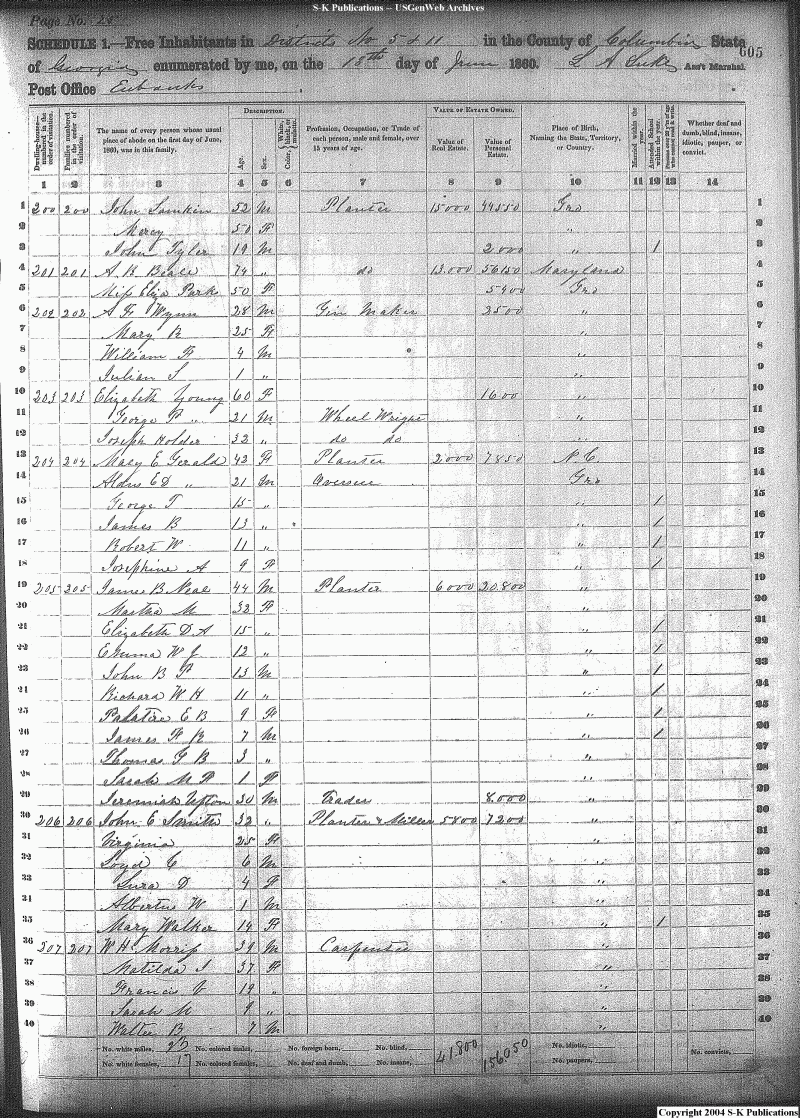 S-K Publications -- USGenWeb Archives
Page No. 25
605
SCHEDULE 1.—Free Inhabitants in Districts No 5 & 11 in the County of Columbia State
of Georgia enumerated by me, on the 18th day of June 1860. L A Luke Ass't Marshal.
Post Office Eubanks
Dwelling-houses—numbered in the order of visitation.
Families numbered in the order of visitation.
The name of every person whose usual place of abode on the first day of June, 1860, was in this family.
DESCRIPTION.
Age.
Sex.
Color, White, black, or mulatto.
Profession, Occupation, or Trade of each person, male and female, over 15 years of age.
VALUE OF ESTATE OWNED.
Value of Real Estate.
Value of Personal Estate.
Place of Birth, Naming the State, Territory, or Country.
Married within the year.
Attended School within the year.
Persons over 20 y'rs of age who cannot read & write.
Whether deaf and dumb, blind, insane, idiotic, pauper, or convict.
1 2 3 4 5 6 7 8 9 10 11 12 13 14
1 200 200 John Lamkin 52 M Planter 15000 44550 Geo 1
2 Mercy 50 F " 2
3 John Tyler 19 M 2000 " / 3
4 201 201 A H Beale 74 " do 13.000 56150 Maryland 4
5 Miss Eliza Park 50 F 5400 Geo 5
6 202 202 A F Wynn 28 M Gin Maker 2500 " 6
7 Mary R 25 F " 7
8 William F 4 M " 8
9 Julian S 1 " " 9
10 203 203 Elizabeth Young 60 F 1600 " 10
11 George P " 21 M Wheel Wright " 11
12 Joseph Holder 32 " do do " 12
13 204 204 Mary E Gerald 43 F Planter 2000 7850 N C. 13
14 " 21 M Overseer Geo 14
15 George T 15 " " / 15
16 James B 13 " " / 16
17 Robert W 11 " " / 17
18 Josephine A 9 F " / 18
19 205 205 James B Neal 44 M Planter 6000 20.800 " 19
20 Martha M 32 F " 20
21 Elizabeth D A 15 " " / 21
22 Emma W J 12 " " / 22
23 John B P 13 M " / 23
24 Richard W H 11 " " / 24
25 E B 9 F " / 25
26 James F R 7 M " / 26
27 Thomas G B 3 " " 27
28 Sarah M P 1 F " 28
29 Jeremiah Upton 30 M Trader 8.000 " 29
30 206 206 John E Smith 32 " Planter & Miller 5800 7200 " 30
31 Virginia 25 F " 31
32 Loyd C 6 M " 32
33 Lura D 4 F " 33
34 Albertus W 1 M " 34
35 Mary Walker 14 F " / 35
36 207 207 W H Morris 39 M Carpenter " 36
37 Matilda J 37 F " 37
38 Francis V 19 " " 38
39 Sarah M 9 " " 39
40 Walter B 7 M " 40
No. white males, 23 No. colored males, No. foreign born, No. blind, 41,800 156050 No. idiotic,
No. white females, 17 No. colored females, No. deaf and dumb, No. insane, No. paupers, No. convicts,
Copyright 2004 S-K Publications